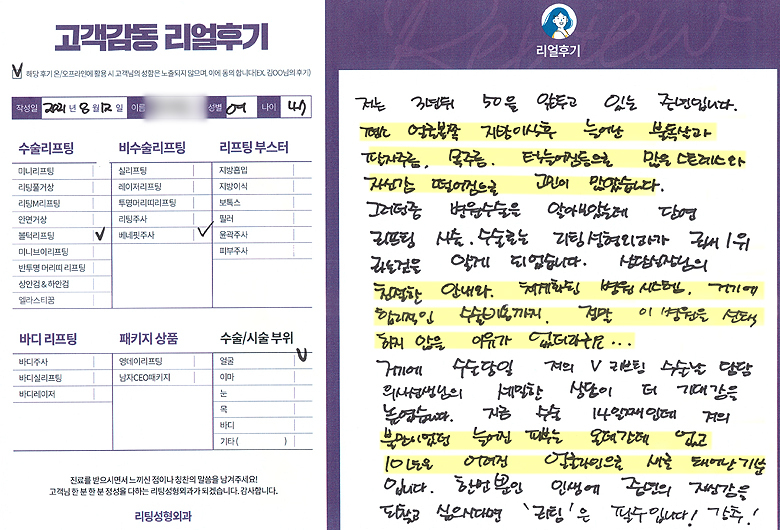 고객감동 리얼후기
해당 후기 온/오프라인에 활용 시 고객님의 성함은 노출되지 않으며, 이에 동의 합니다(EX. 김OO님의 후기)
작성일 2021년 8월 12일 이름 성별 여 나이 47
수술리프팅
미니리프팅
리팅풀거상
리팅M리프팅
안면거상
볼턱리프팅
미니브이리프팅
반투명 머리띠 리프팅
상안검 & 하안검
엘라스티꿈
비수술리프팅
실리프팅
레이저리프팅
투명머리띠리프팅
리팅주사
베네핏주사
리프팅 부스터
지방흡입
지방이식
보톡스
필러
윤곽주사
피부주사
바디 리프팅
바디주사
바디실리프팅
바디레이저
패키지 상품
영데이리프팅
남자CEO패키지
수술/시술 부위
얼굴
이마
눈
목
바디
기타 ( )
진료를 받으시면서 느끼신 점이나 칭찬의 말씀을 남겨주세요!
고객님 한 분 한 분 정성을 다하는 리팅성형외과가 되겠습니다. 감사합니다.
리팅성형외과
Review
리얼후기
저는 3년뒤 50을 앞두고 있는 중년입니다.
평소 얼굴볼쪽 지방이식후 늘어난 불독살과
팔자주름, 목주름, 턱늘어짐등으로 많은 스트레스와
자신감 떨어짐으로 고민이 많았습니다.
그러던중 병원수술은 알아보았는데 단연
리프팅 시술, 수술로는 리팅성형외과가 국내 1위
라는것은 알게 되었습니다. 상담실장님의
친절한 안내와, 체계화된 병원 시스템, 거기에
합리적인 수술비용까지, 정말 이 병원을 선택
하지 않을 이유가 없더라구요...
거기에 수술당일 저의 V 리프팅 수술날 담당
의사선생님의 세밀한 상담이 더 기대감을
높였습니다. 지금 수술 14일째인데 저의
불만이었던 늘어진 피부는 오데간데 없고
10년도 어려진 얼굴라인으로 새로 태어난기분
입니다. 한번뿐인 인생에 중년의 자신감을
되찾고 싶으시다면 '리팅'은 필수입니다! 강추!